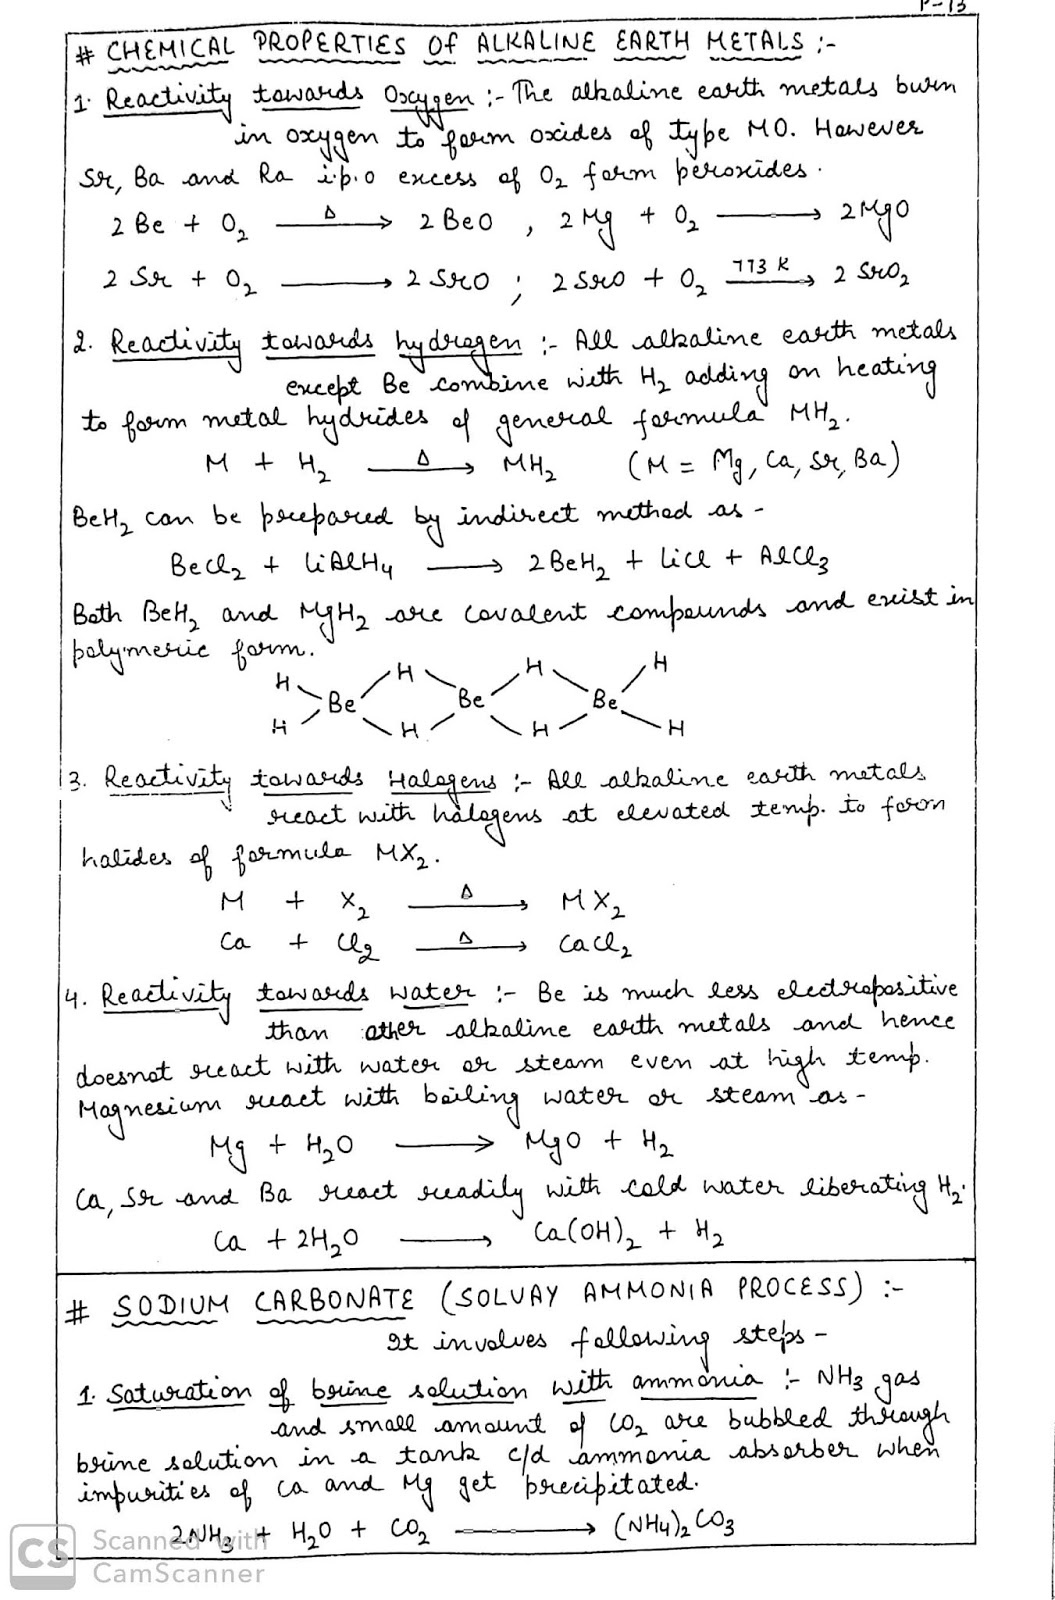 P-13
# CHEMICAL PROPERTIES Of ALKALINE EARTH METALS :-
1. Reactivity towards Oxygen :- The alkaline earth metals burn
in oxygen to form oxides of type MO. However
Sr, Ba and Ra i.p.o excess of O₂ form peroxides.
2 Be + O₂ —Δ→ 2 BeO , 2 Mg + O₂ ⟶ 2MgO
2 Sr + O₂ ⟶ 2 SrO ; 2 SrO + O₂ —773 K→ 2 SrO₂
2. Reactivity towards hydrogen :- All alkaline earth metals
except Be combine with H₂ adding on heating
to form metal hydrides of general formula MH₂.
M + H₂ —Δ→ MH₂ (M = Mg, Ca, Sr, Ba)
BeH₂ can be prepared by indirect method as -
BeCl₂ + LiAlH₄ ⟶ 2BeH₂ + LiCl + AlCl₃
Both BeH₂ and MgH₂ are covalent compounds and exist in
polymeric form.
H H H H
Be Be Be
H H H H
3. Reactivity towards Halogens :- All alkaline earth metals
react with halogens at elevated temp. to form
halides of formula MX₂.
M + X₂ —Δ→ MX₂
Ca + Cl₂ —Δ→ CaCl₂
4. Reactivity towards water :- Be is much less electropositive
than other alkaline earth metals and hence
doesnot react with water or steam even at high temp.
Magnesium react with boiling water or steam as -
Mg + H₂O ⟶ MgO + H₂
Ca, Sr and Ba react readily with cold water liberating H₂.
Ca + 2H₂O ⟶ Ca(OH)₂ + H₂
# SODIUM CARBONATE (SOLVAY AMMONIA PROCESS) :-
It involves following steps -
1. Saturation of brine solution with ammonia :- NH₃ gas
and small amount of CO₂ are bubbled through
brine solution in a tank c/d ammonia absorber when
impurities of Ca and Mg get precipitated.
2NH₃ + H₂O + CO₂ ⟶ (NH₄)₂CO₃
CS Scanned with
CamScanner